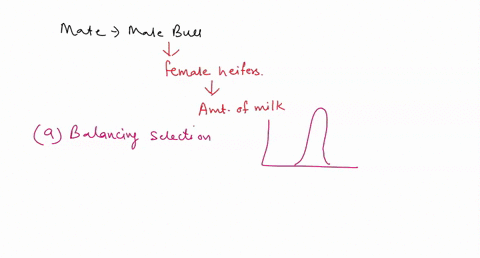 Mate → Male Bull
↓
female heifers.
↓
Amt. of milk
(a) Balancing Selection